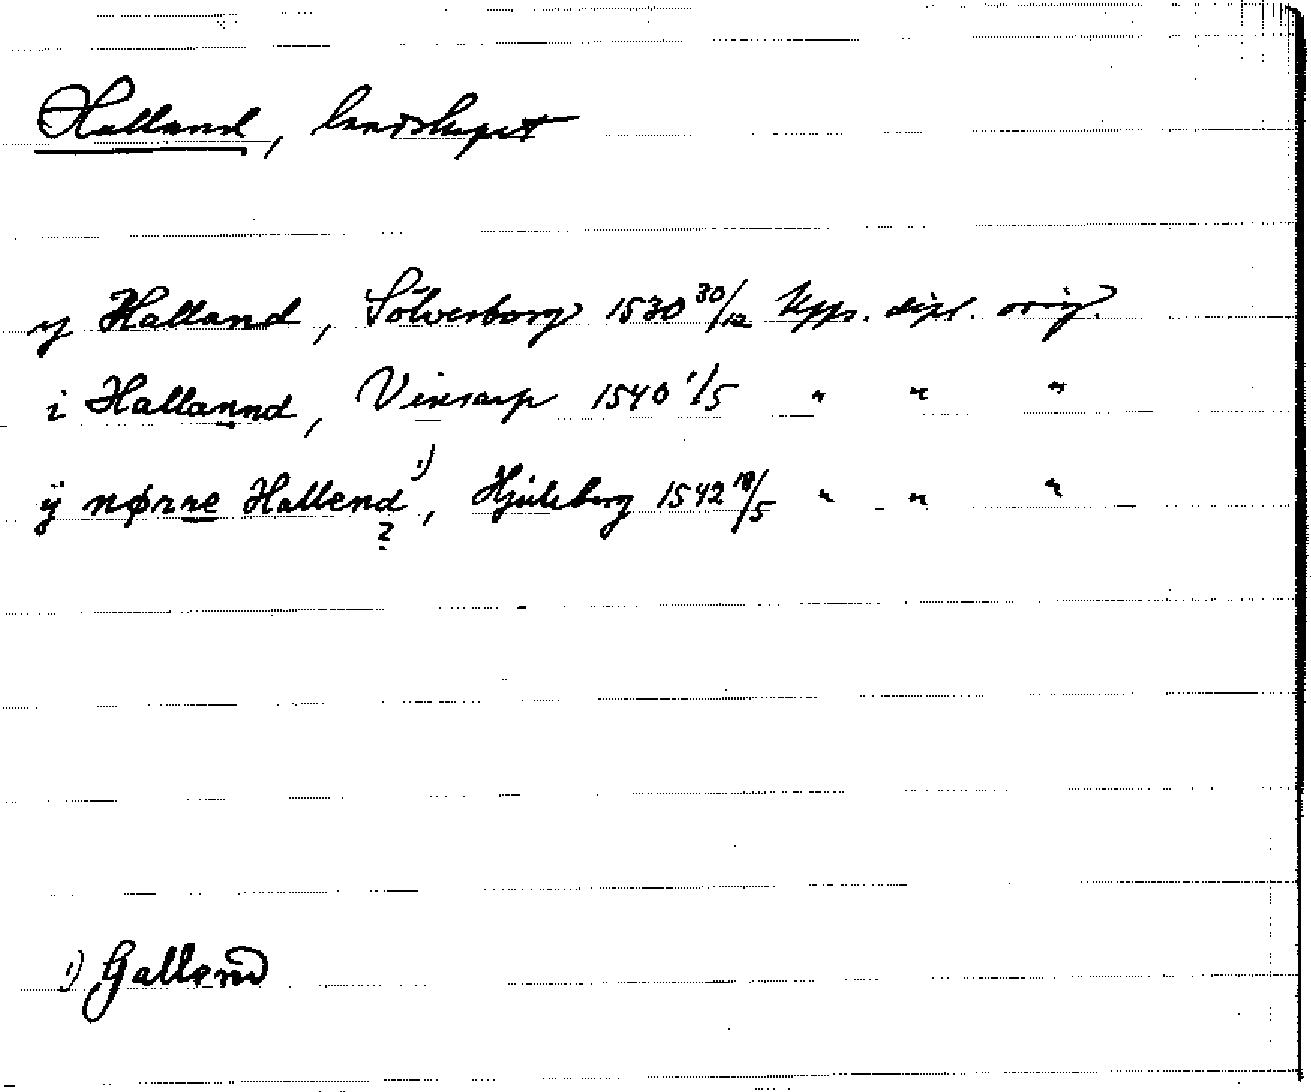 Halland, landskapet
y Halland, Sölvesborg 1530 30/12 Upps. dipl. orig.
i Hallannd, Vinsarp 1540 1/5 " " "
ÿ nørne Hallend ¹⁾, Hjuleberg 1542 18/5 " " "
?
1) Gallend